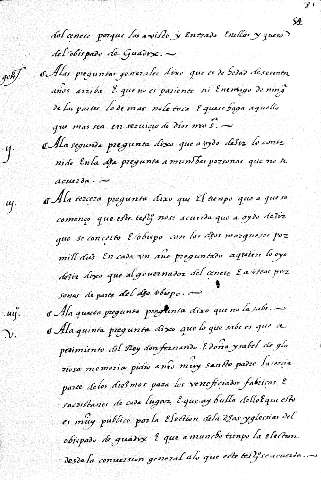 del cenete porque las a visto y Entrado En ellas y zerca
del obispado de Guadix.
A las preguntas generales dixo que es de hedad de sesenta
años arriba E que no es pariente ni Enemigo de ning^a
de las partes lo demas no le toca E que se haga aquello
que mas sea en servicio de dios nro S^r.
ij. A la segunda pregunta dixo que a oydo dezir lo conte
nido En la dha pregunta a muchas personas que no se
acuerda.
iij. A la tercera pregunta dixo que El tienpo que a que se
començo que este testigo no se acuerda que a oydo dezir
que se concerto El obispo con los dhos marqueses por
mill ds En cada un año preguntado a quien lo oyo
dezir dixo que al governador del cenete E a otras per
sonas de parte del dho obispo.
iiij. A la quarta pregunta dixo que no la sabe.
v. A la quinta pregunta dixo que lo que sabe es que a
pedimiento del Rey don fernando E doña ysabel de glo
riosa memoria pidio años muy santo padre la tercia
parte de los diezmos para los veneficiados fabricas E
sacristanes de cada lugar E que ay bulla dello E que esto
es muy publico por la Election de las dhas yglesias del
obispado de guadix E que a mucho tienpo la election
desde la conversion general a lo que este testigo se acuerda.